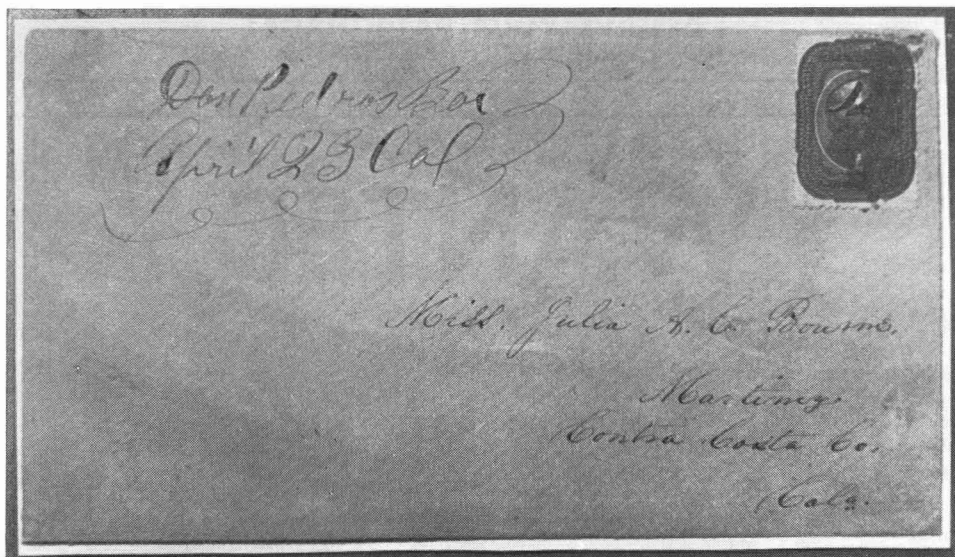 Don Pedros Bar
April 23 Cal
Miss. Julia A. C. Bourne.
Martinez
Contra Costa Co.
Cala.